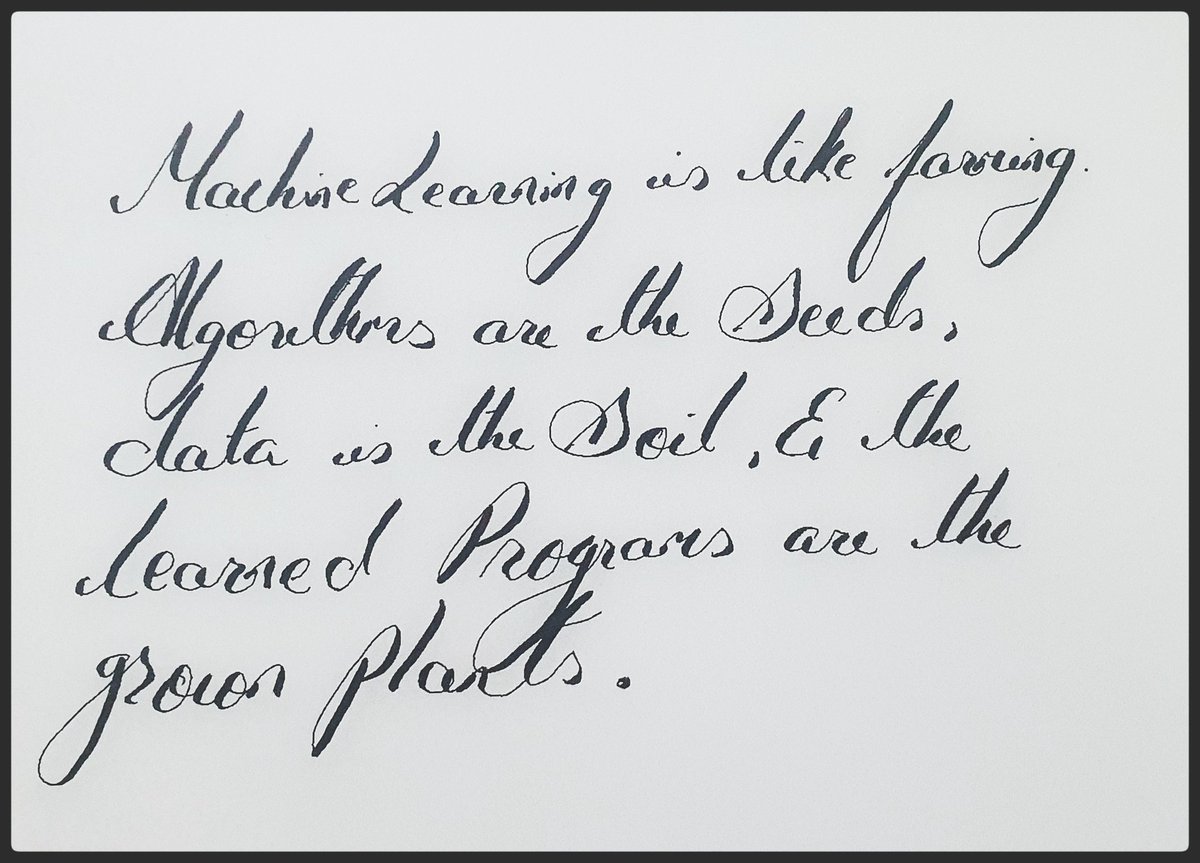 Machine Learning is like farming.
Algorithms are the Seeds,
data is the Soil, & the
learned Programs are the
grown plants.